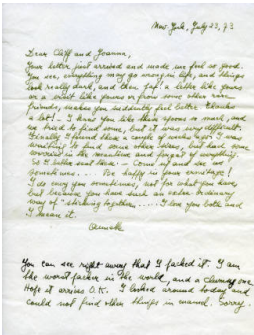 New York, July 23, 73
Dear Cliff and Joanna,
Your letter just arrived and made me feel so good.
You see, everything may go wrong in life, and things
look really dark, and then zap! a letter like yours
or a visit like yours or from some other rare
friends, makes you suddenly feel better. Thanks
a lot! - I knew you like them spoons so much, and
we tried to find some, but it was very difficult.
Finally I found these a couple of weeks ago. I was
waiting to find some other ones, but had some
worries in the meantime and forgot of everything.
So I better send them. - Come and see us
sometimes.... Be happy in your
I do envy you sometimes, not for what you have
but because you have such an extra ordinary
way of "sticking together.... I love you both and
I mean it.
You can see right away that I packed it. I am
the worst packer in the world, and a clumsy one.
Hope it arrives O.K. I looked around today and
could not find other things in enamel. Sorry.